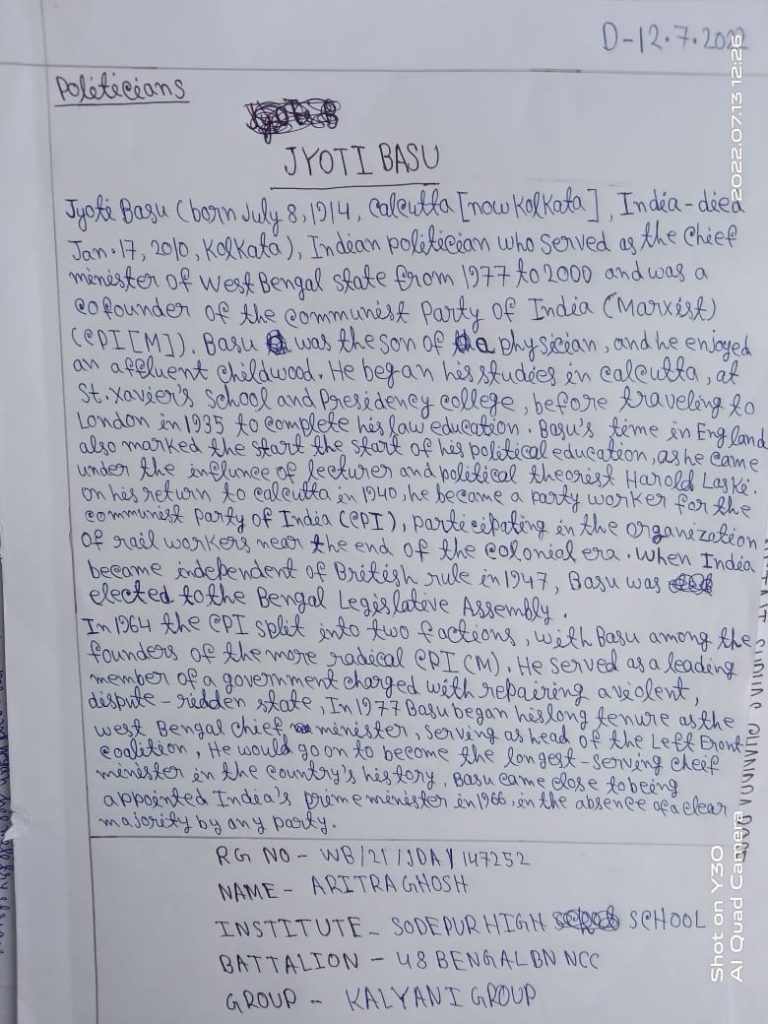 D-12.7.2022
Politicians
JYOTI BASU
Jyoti Basu (born July 8, 1914, Calcutta [now Kolkata], India-died
Jan.17, 2010, Kolkata), Indian politician who served as the Chief
minister of West Bengal state from 1977 to 2000 and was a
cofounder of the communist Party of India (Marxist)
(CPI[M]). Basu was the son of a physician, and he enjoyed
an affluent childwood. He began his studies in calcutta, at
St. Xavier's School and Presidency college, before traveling to
London in 1935 to complete his law education. Basu's time in England
also marked the start the start of his political education, as he came
under the influnce of lecturer and political theorist Harold Laski.
on his return to calcutta in 1940, he became a party worker for the
communist Party of India (CPI), participating in the organization
of rail workers near the end of the colonial era. When India
became independent of British rule in 1947, Basu was
elected to the Bengal Legislative Assembly.
In 1964 the CPI split into two factions, with Basu among the
founders of the more radical CPI (M). He served as a leading
member of a government charged with repairing a violent,
dispute-ridden state, In 1977 Basu began his long tenure as the
west Bengal chief minister, serving as head of the Left Front
coalition, He would go on to become the longest-serving cheif
minister in the country's history. Basu came close to being
appointed India's prime minister in 1966, in the absence of a clear
majority by any party.
RG NO - WB/21/JDA/147252
NAME - ARITRA GHOSH
INSTITUTE - SODEPUR HIGH SCHOOL
BATTALION - 48 BENGAL BN NCC
GROUP - KALYANI GROUP
2022.07.13 12:26
Shot on Y30
AI Quad Camera